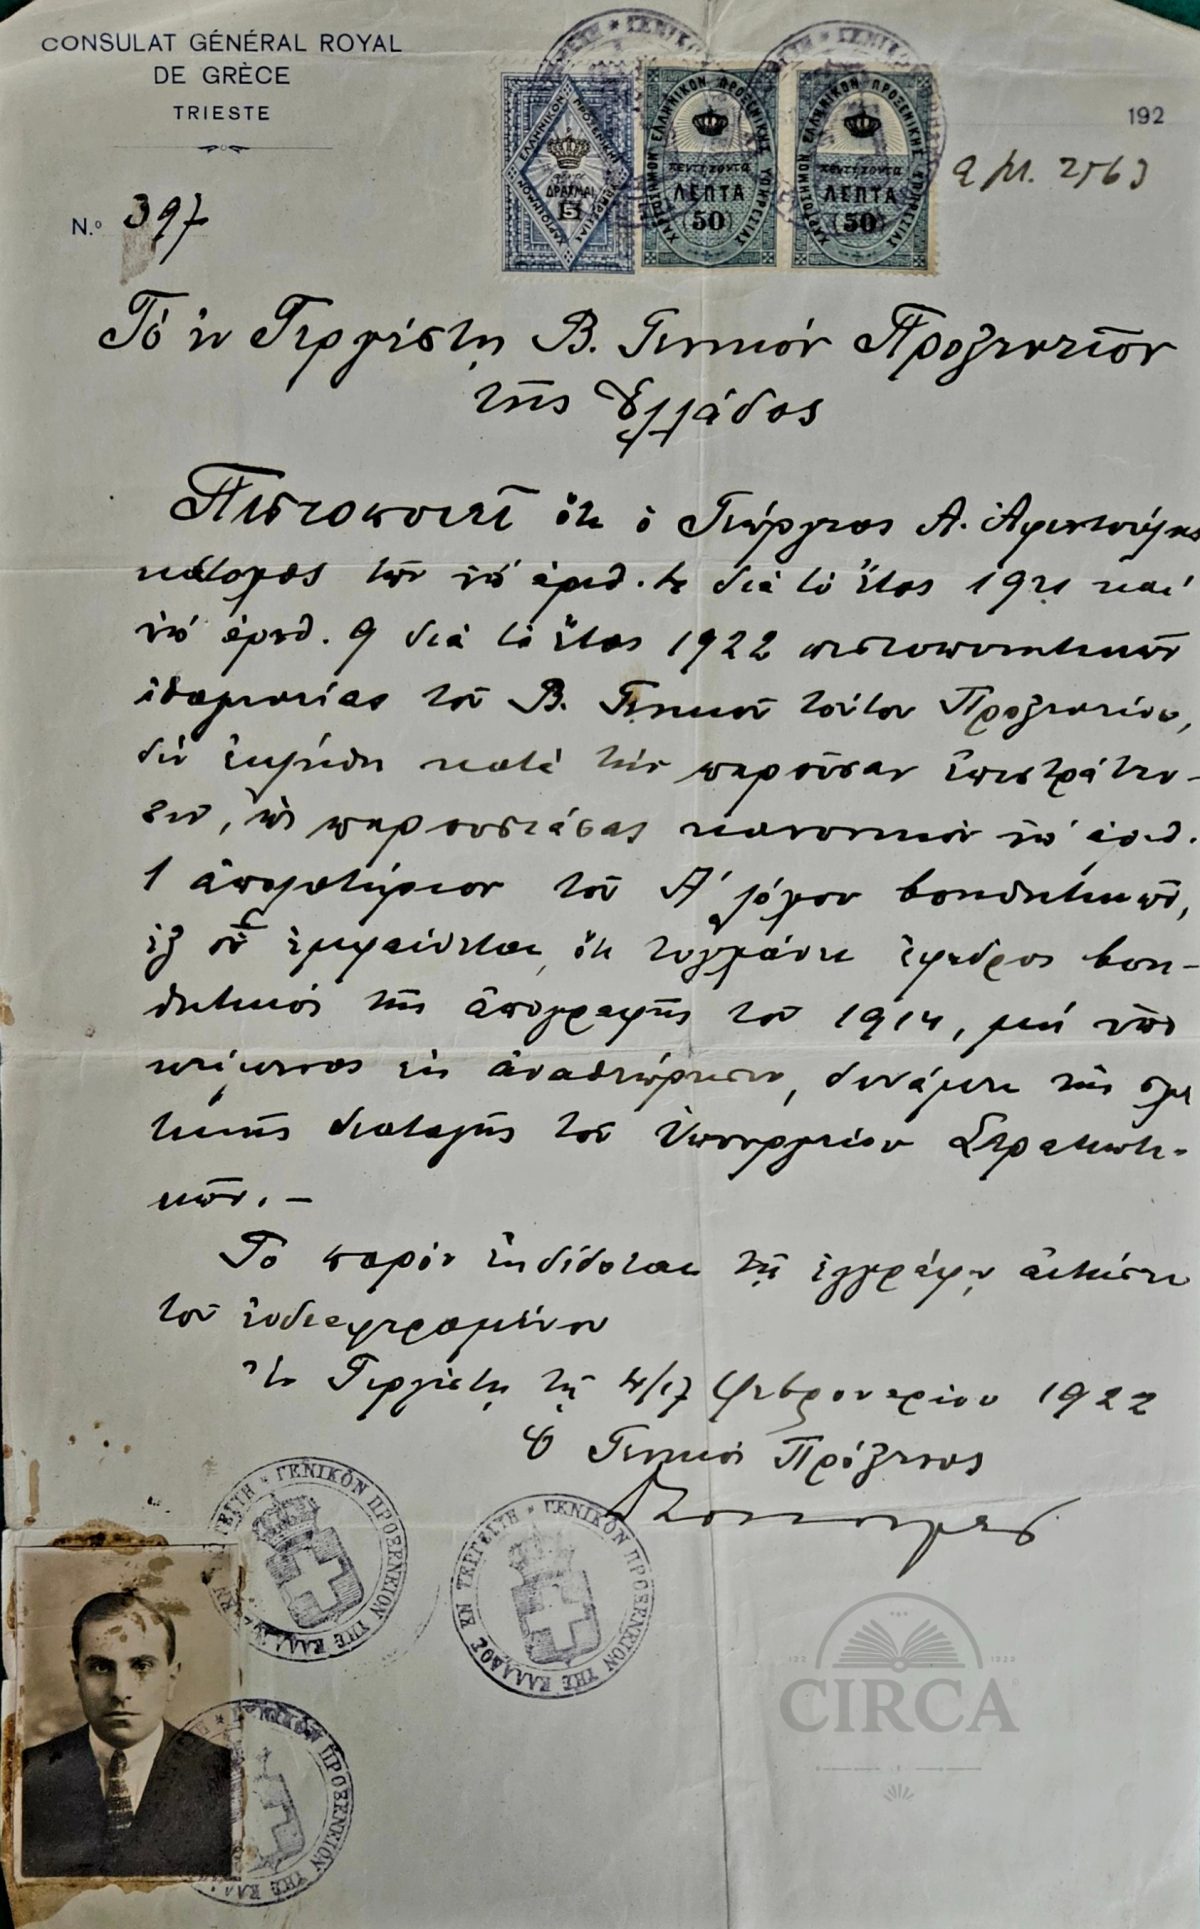 CONSULAT GÉNÉRAL ROYAL
DE GRÈCE
TRIESTE
192
N.º 397
ΧΑΡΤΟΣΗΜΟΝ ΕΛΛΗΝΙΚΗΝ ΠΡΟΞΕΝΙΚΗΣ ΥΠΗΡΕΣΙΑΣ
ΔΡΑΧΜΑΙ
5
ΧΑΡΤΟΣΗΜΟΝ ΕΛΛΗΝΙΚΟΝ ΠΡΟΞΕΝΙΚΗΣ ΥΠΗΡΕΣΙΑΣ
πεντήκοντα
ΛΕΠΤΑ
(50)
ΧΑΡΤΟΣΗΜΟΝ ΕΛΛΗΝΙΚΟΝ ΠΡΟΞΕΝΙΚΗΣ ΥΠΗΡΕΣΙΑΣ
πεντήκοντα
ΛΕΠΤΑ
(50)
2563
Τό ἐν Τεργέστῃ Β. Γενικόν Προξενεῖον
τῆς Ἑλλάδος
Πιστοποιεῖ ὅτι ὁ Γεώργιος Α.
κάτοχος τῶν ὑπ' ἀριθ. 4 διά τό ἔτος 1921 καί
ὑπ' ἀριθ. 9 διά τό ἔτος 1922 πιστοποιητικῶν
ἰθαγενείας τοῦ Β. Γενικοῦ τούτου Προξενείου,
δέν ἐκλήθη κατά τήν παροῦσαν ἐπιστράτευ-
σιν, ὡς παρουσιάσας κανονικόν ὑπ' ἀριθ.
1 ἀπολυτήριον τοῦ Α' λόχου βοηθητικῶν,
ἐξ οὗ ἐμφαίνεται ὅτι τυγχάνει ἔφεδρος βοη-
θητικός τῆς ἀπογραφῆς τοῦ 1914, μή ὑπο
κείμενος εἰς ἀναθεώρησιν, δυνάμει τῆς σχε
τικῆς διαταγῆς τοῦ Ὑπουργείου Στρατιωτι-
κῶν. –
Τό παρόν ἐκδίδοται τῇ ἐγγράφῳ αἰτήσει
τοῦ ἐνδιαφερομένου
Ἐν Τεργέστῃ τῇ 4/17 Φεβρουαρίου 1922
Ὁ Γενικός Πρόξενος
ΓΕΝΙΚΟΝ ΠΡΟΞΕΝΕΙΟΝ ΤΗΣ ΕΛΛΑΔΟΣ ΕΝ ΤΕΡΓΕΣΤΗ
ΓΕΝΙΚΟΝ ΠΡΟΞΕΝΕΙΟΝ ΤΗΣ ΕΛΛΑΔΟΣ ΕΝ ΤΕΡΓΕΣΤΗ
ΓΕΝΙΚΟΝ ΠΡΟΞΕΝΕΙΟΝ ΤΗΣ ΕΛΛΑΔΟΣ
CIRCA